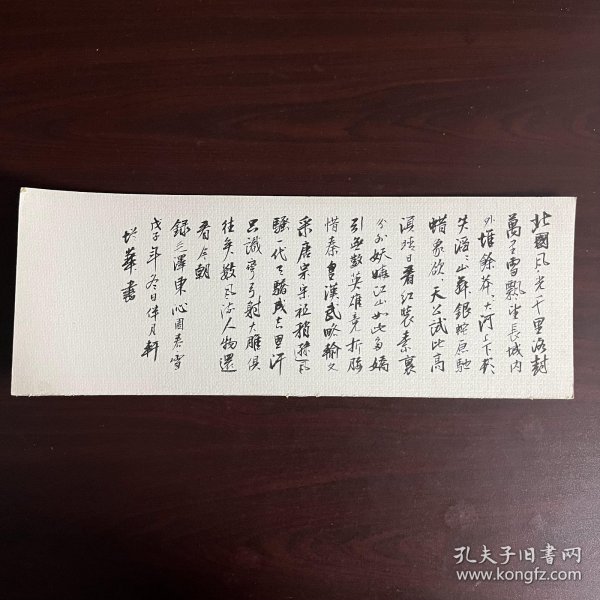 北國風光千里冰封
萬里雪飄望長城内
外惟餘莽〻大河上下頓
失滔〻山舞銀蛇原馳
蜡象欲天公試比高
須晴日看紅裝素裹
分外妖嬈江山如此多嬌
引無數英雄競折腰
惜秦皇漢武略輸文
采唐宗宋祖稍遜風
騷一代天驕成吉思汗
只識彎弓射大雕俱
往矣數風流人物還
看今朝
録毛澤東沁園春雪
戊子年冬日伴月軒
華書
孔夫子旧书网
www.kongfz.com